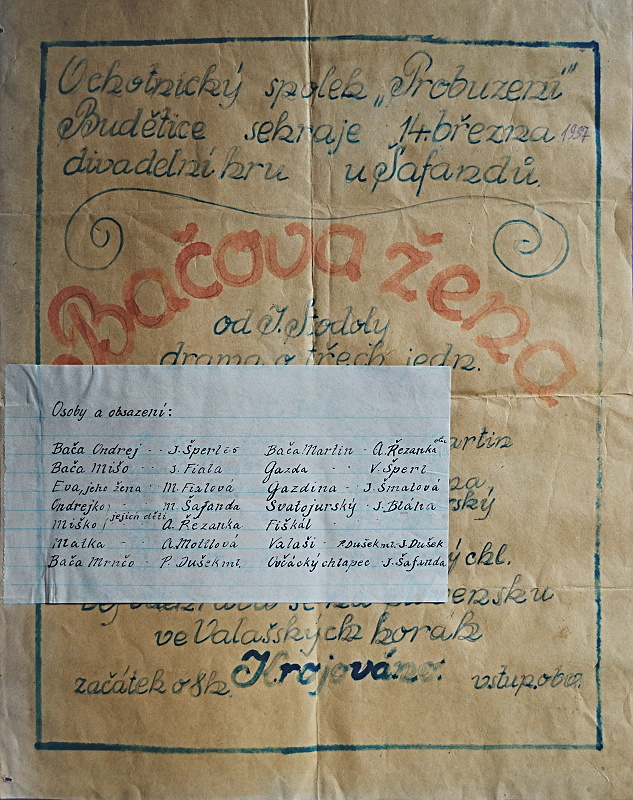 Ochotnický spolek „Probuzení“
Budětice sehraje 14. března 1937
divadelní hru u Šafandů.
Bačova žena
od J. Stodoly
drama o třech jedn.
artin
Osoby a obsazení:
Bača Ondrej - - J. Šperl Bača Martin - A. Řezanka
Bača Mišo - - J. Fiala Gazda - - V. Šperl
Eva, jeho žena - M. Fialová Gazdina - J. Šmatová
Ondrejko - M. Šafanda Svatojurský - J. Bláha
Miško jejich děti A. Řezanka Fiškál -
Matka - A. Mottlová Valaši - P. Dušek ml. J. Dušek
Bača Mrnčo - P. Dušek ml. Ovčácký chlapec - J. Šafanda
za,
rský
ý chl.
ve Valašských horách
Krojováno.
začátek o 8h. vstup. obv.